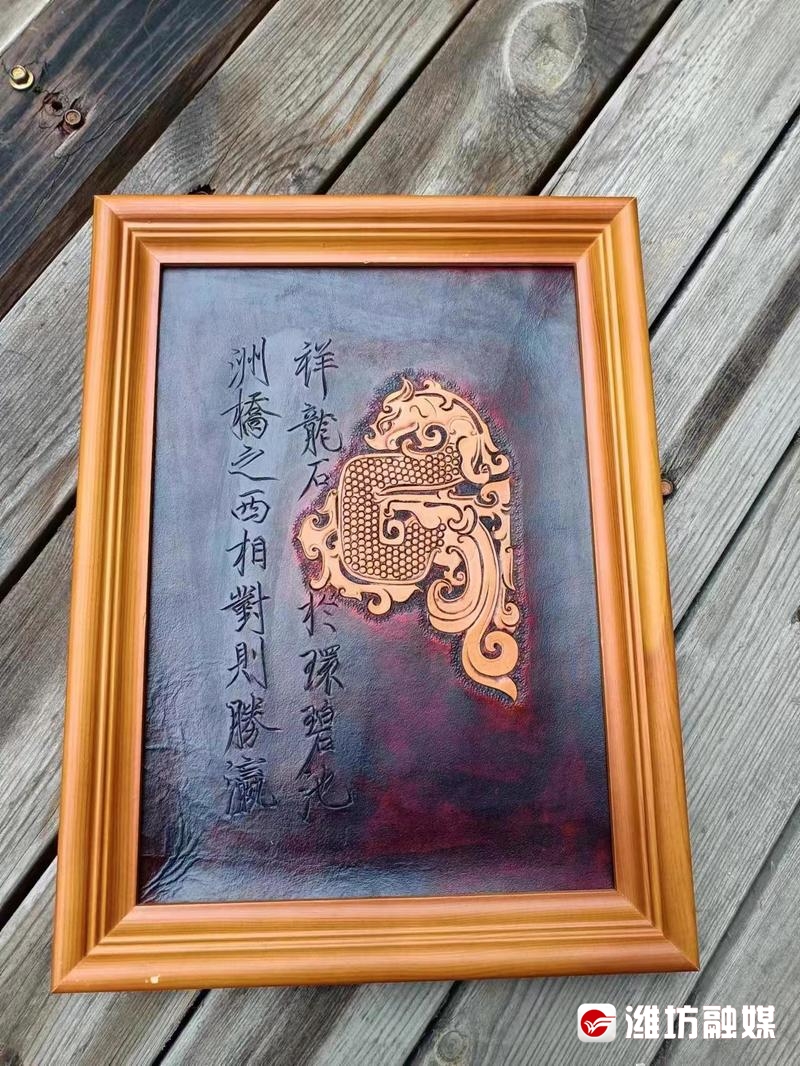 祥龍石於環碧池
洲橋之西相對則勝瀛
潍坊融媒